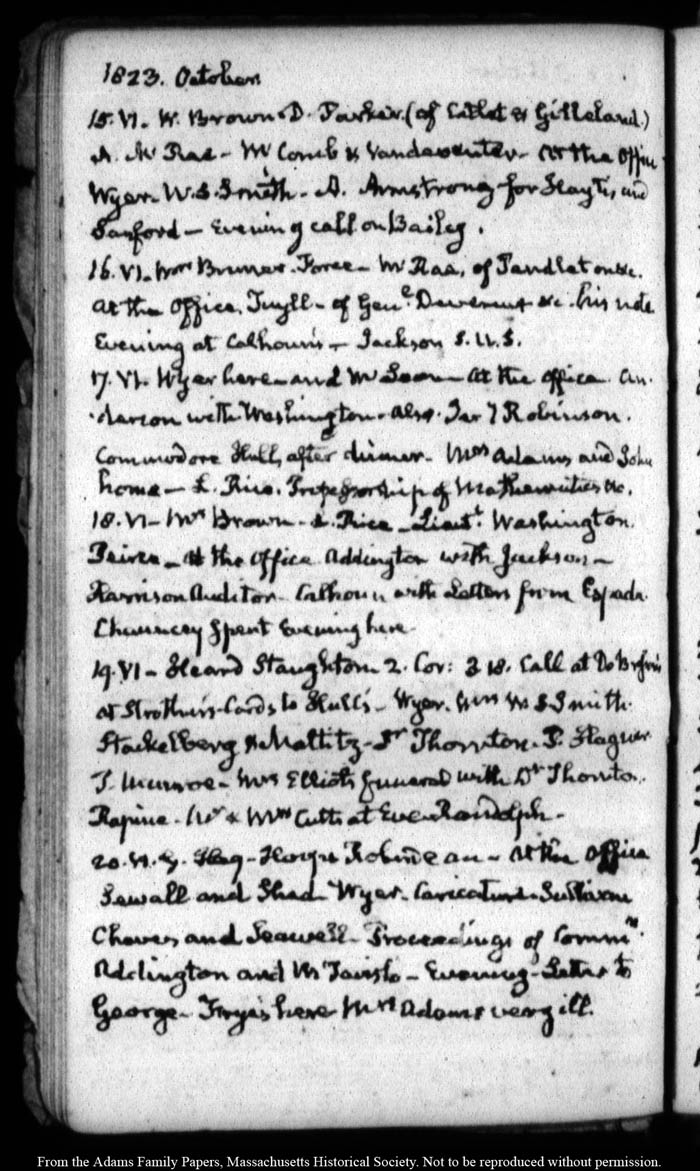 1823. October.
15. VI. W. Brown. D. Parker. (of Catlet & Gilleland.)
A. McRae - McComb & Vandeventer - At the Office
Wyer. W. S. Smith. A. Armstrong for Hayti, and
Sanford - Evening call on Bailey.
16. VI. Force - McRae, of Pendleton &c.
At the Office, Tuyll - of Genl. Devereux &c. his note
Evening at Calhoun's - Jackson S.U.S.
17. VI. Wyer here - and At the office. An-
derson with Washington. also. Robinson.
Commodore Hull, after dinner. Mrs. Adams and John
home - L. Rice. Professorship of Mathematics &c.
18. VI - Mrs Brown - L. Rice - Lieut. Washington.
Peirce - At the Office Addington with Jackson -
Harrison Auditor - Calhoun with Letters from
Chauncey Spent Evening here.
19. VI - Heard Staughton 2. Cor: 3. 18. Call at
at Strother's - Cards to Hull's - Wyer. Mrs W. S. Smith.
Stackelberg & Maltitz - Dr Thornton. P. Hagner
T. Munroe - Mrs Elliot's funeral with Dr Thornton.
Rapine - Mr & Mrs Cutts at Eve. Randolph -
20. VI. Robineau - At the Office
Sewall and Shed - Wyer. Caricature.
Cheves and Seawell - Proceedings of Commn.
Addington and - Evening - Letter to
George - Frye's here Mrs Adams very ill.
From the Adams Family Papers, Massachusetts Historical Society. Not to be reproduced without permission.